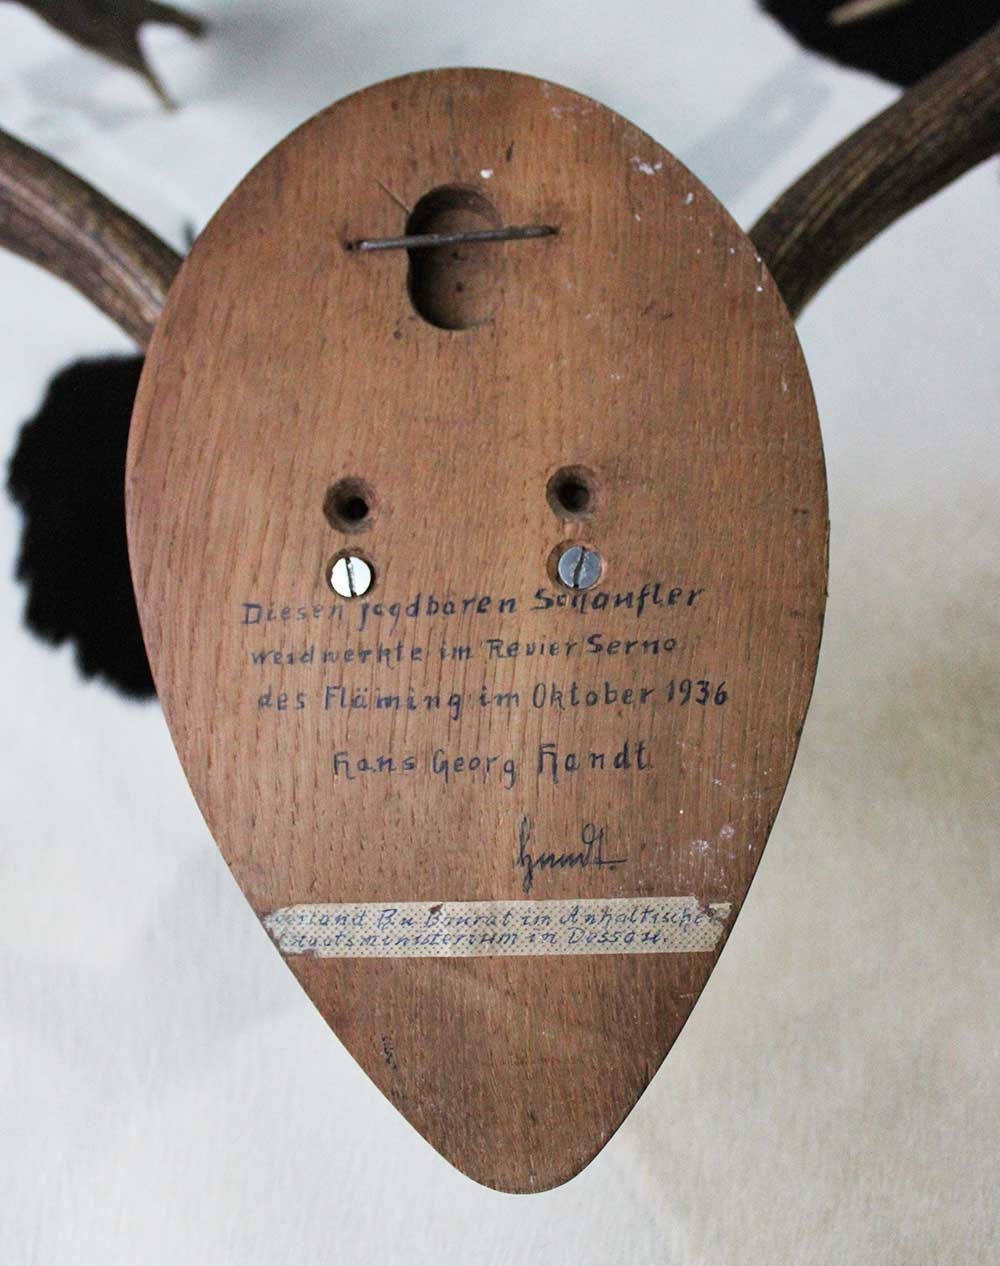 Diesen jagdbaren Schaufler
weidwerkte im Revier Serno
des Fläming im Oktober 1936
Hans Georg Handt
Handt.
im Anhaltischen
Staatsministerium in Dessau.